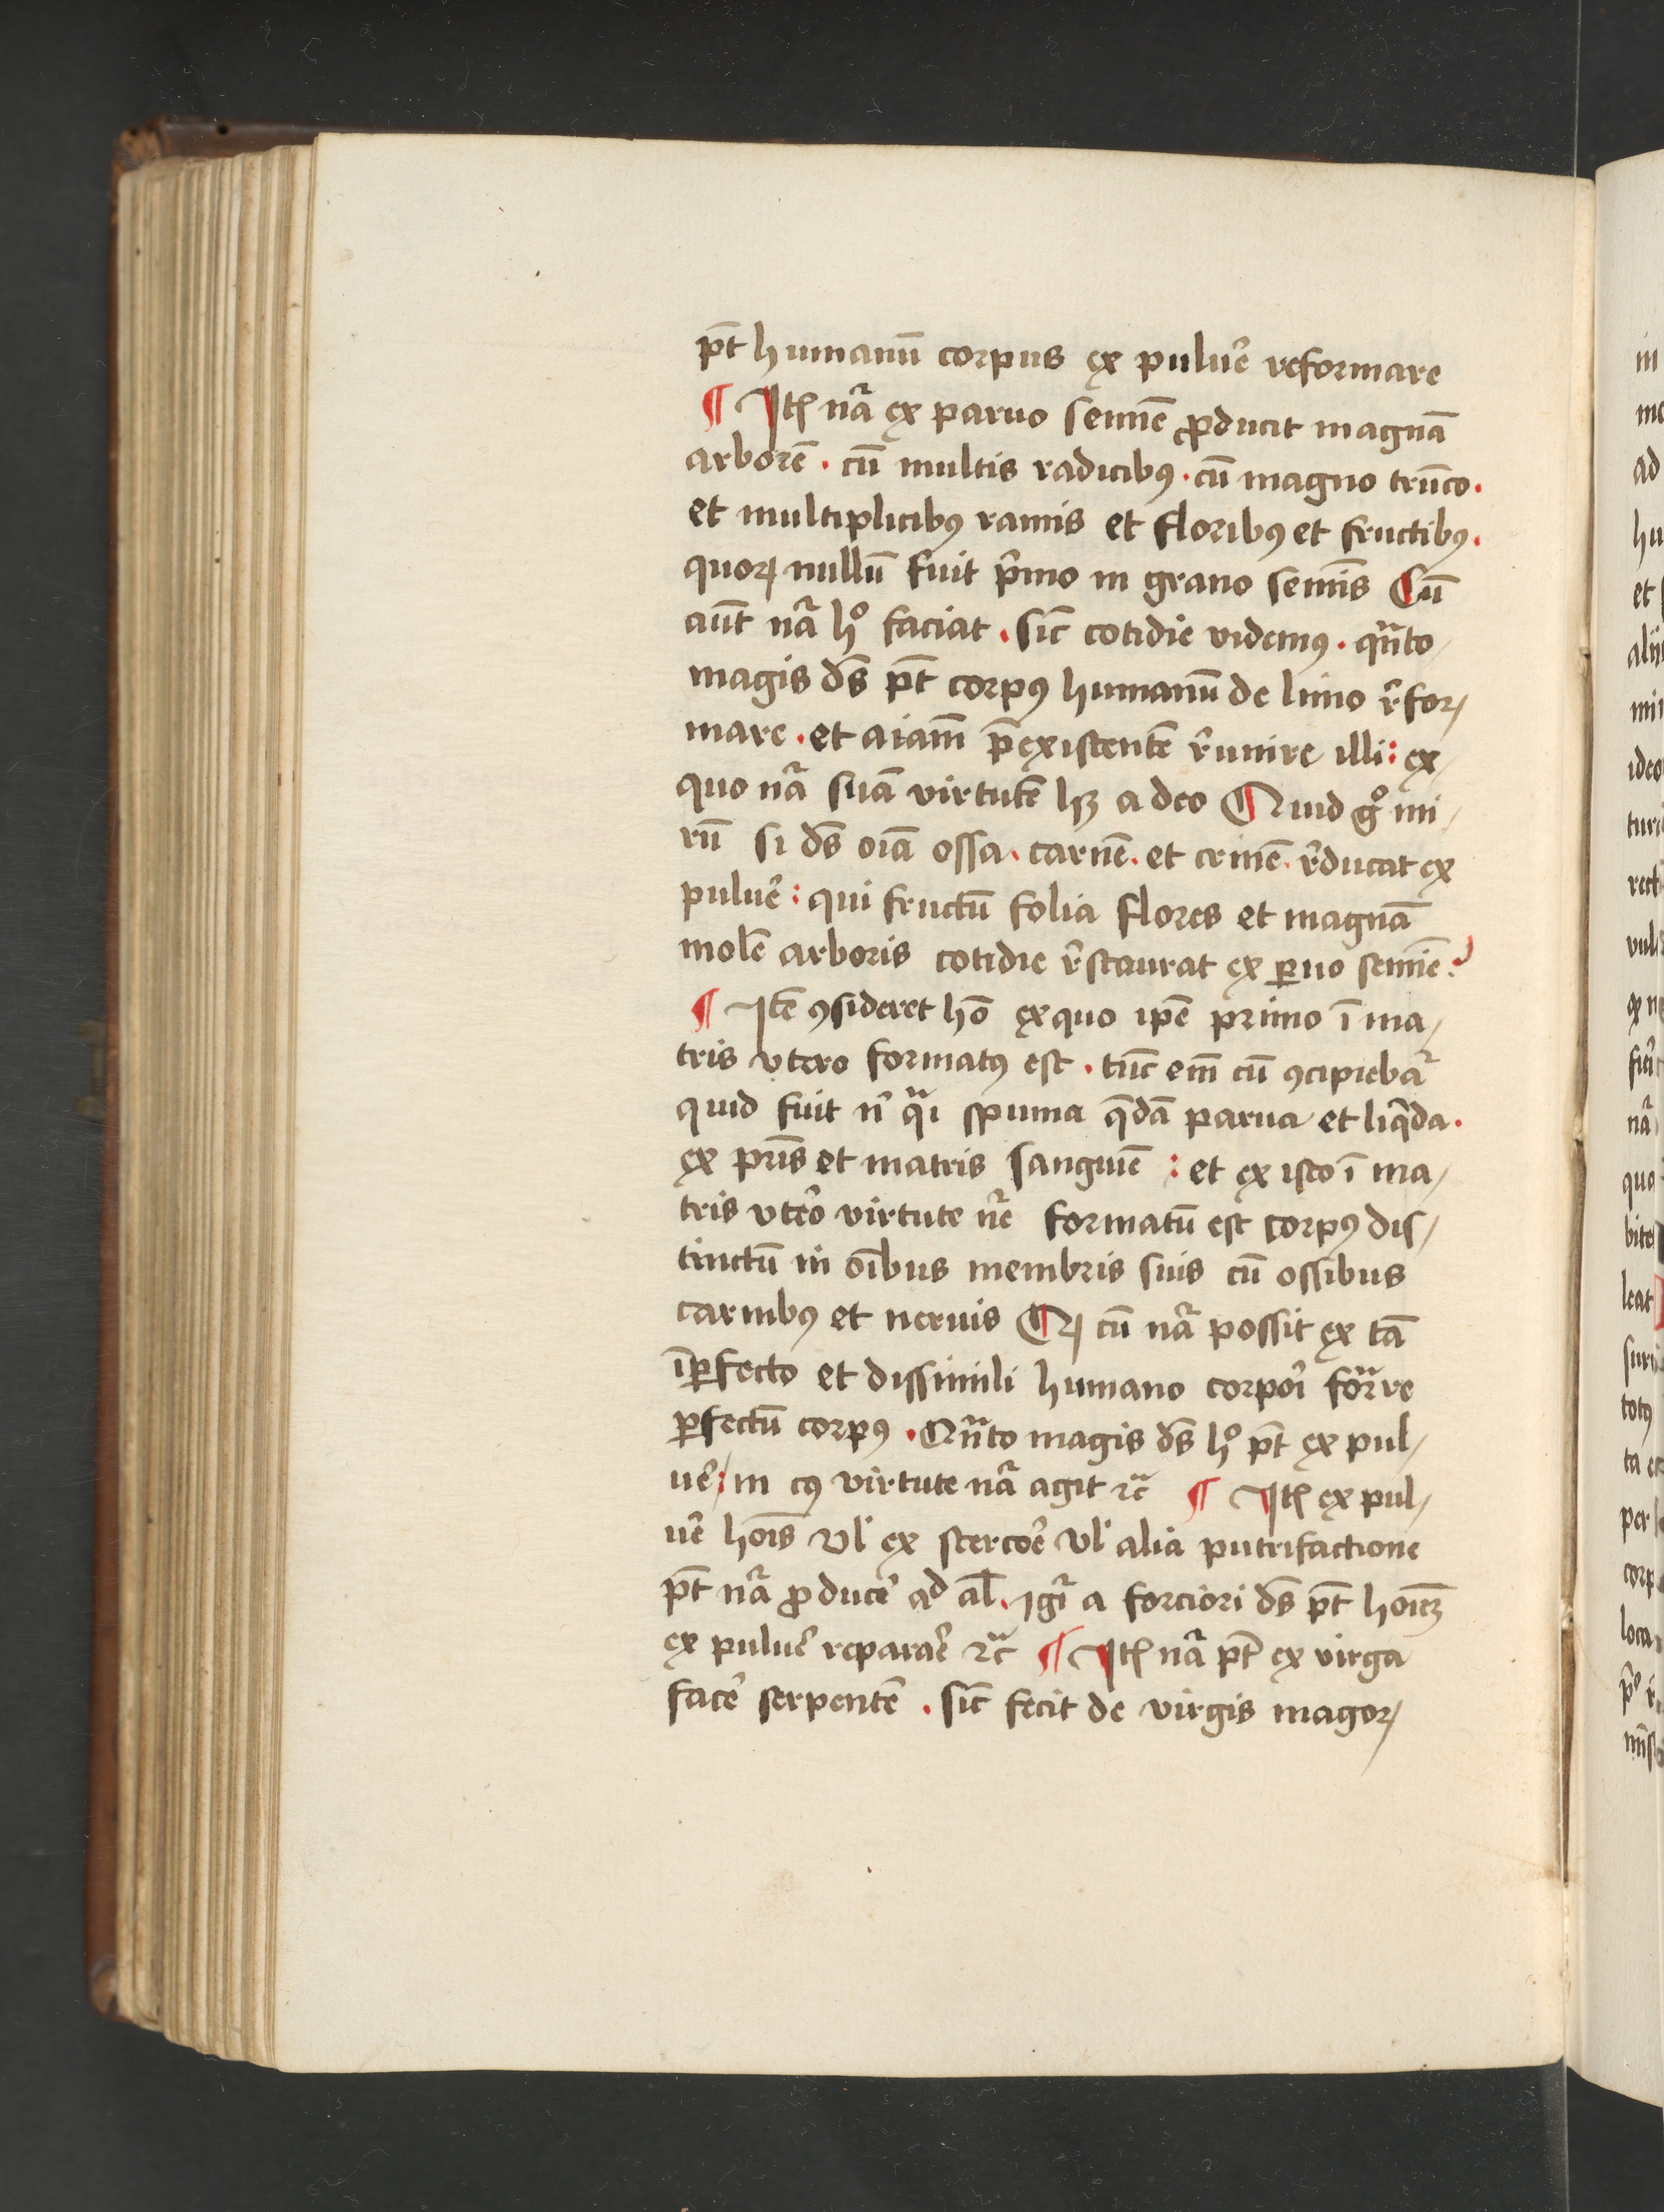 pt̄ humanū corpus ex puluē reformare
¶ Itꝫ nr̃a ex paruo semīe ꝓducit magnā
arborē . cū multis radicibꝰ . cū magno trūco .
et multiplicibꝰ ramis et floribꝰ et fructibꝰ .
quoꝝ nullū fuit p̃mo in grano semīs Cū
aūt nr̃a hͦ faciat . sic̄ cotidie videmꝰ . qn̄to /
magis ds̄ pt̄ corpꝰ humanū de limo r̃for /
mare . et aīam p̄existentē r̃unire illi : ex /
quo nr̃a suā virtutē hꝫ a deo Quid gͦ mi /
rū si ds̄ oīa ossa . carnē . et crinē . r̃ducat ex
puluē : qui fructū folia flores et magnā
molē arboris cotidie r̃staurat ex ꝑuo semīe ?
¶ Itē ꝯsideret hō exquo ip̄e primo ī ma /
tris vtero formatꝰ est . tūc em̄ cū ꝯcipiebat̃
quid fuit n̄ qͣi spuma q̄dā parua et liq̄da .
ex pr̄is et matris sanguīe : et ex isto ī ma /
tris vtēo virtute nr̃e formatū est corpꝰ dis /
tinctū in oībus membris suis cū ossibus
carnibꝰ et neruis Qꝫ cū nr̃a possit ex tā
īꝑfecto et dissimili humano corpoī forͣre
ꝑfectū corpꝰ . Qn̄to magis ds̄ hͦ pt̄ ex pul /
uē : / in cꝰ virtute nr̃a agit ⁊c̃ ¶ Itꝫ ex pul /
uē hoīs vl' ex stercoē vl' alia putrifactione
pt̄ nr̃a ꝓducē ad al̄ . igr̃ a forciori ds̄ pt̄ hoīeꝫ
ex puluē reparaē ⁊c̃ ¶ Itꝫ nr̃a pt̄ ex virga
facē serpentē . sic̄ fecit de virgis magoꝝ